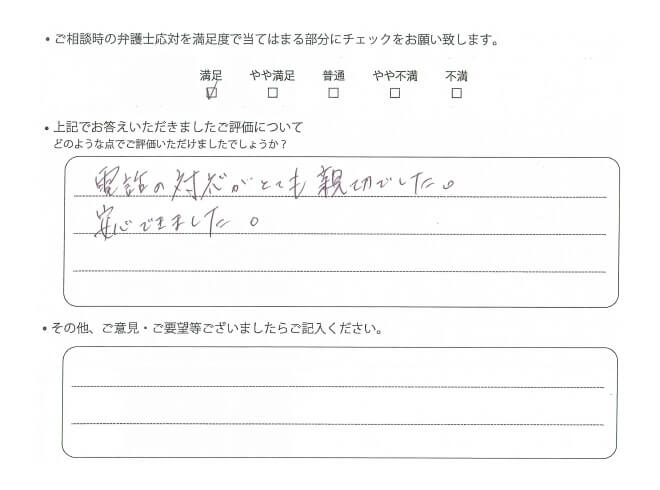 • ご相談時の弁護士応対を満足度で当てはまる部分にチェックをお願い致します。
満足 やや満足 普通 やや不満 不満
☑ □ □ □ □
• 上記でお答えいただきましたご評価について
どのような点でご評価いただけましたでしょうか？
電話の対応がとても親切でした。
安心できました。
• その他、ご意見・ご要望等ございましたらご記入ください。